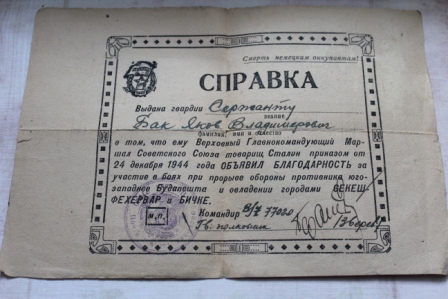 Смерть немецким оккупантам!
СПРАВКА
Выдана гвардии Сержанту
звание
Бак Яков Владимирович
фамилия, имя и отчество
в том, что ему Верховный Главнокомандующий Мар-
шал Советского Союза товарищ Сталин приказом от
24 декабря 1944 года ОБЪЯВИЛ БЛАГОДАРНОСТЬ за
участие в боях при прорыве обороны противника юго-
западнее Будапешта и овладении городами СЕКЕШ-
ФЕХЕРВАР и БИЧКЕ.
м.п.
Командир в/ч 77020
Гв. полковник
Зверев